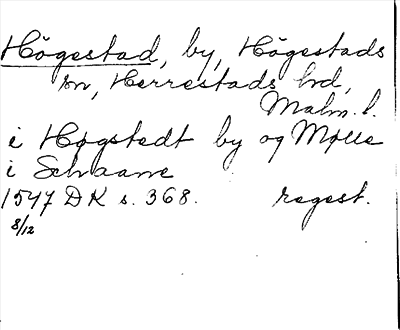 Högestad, by, Högestads
sn, Herrestads hd,
Malm. l.
i Høgstedt by og Mølle
i Schaane
1547 DK s. 368. regest.
8/12